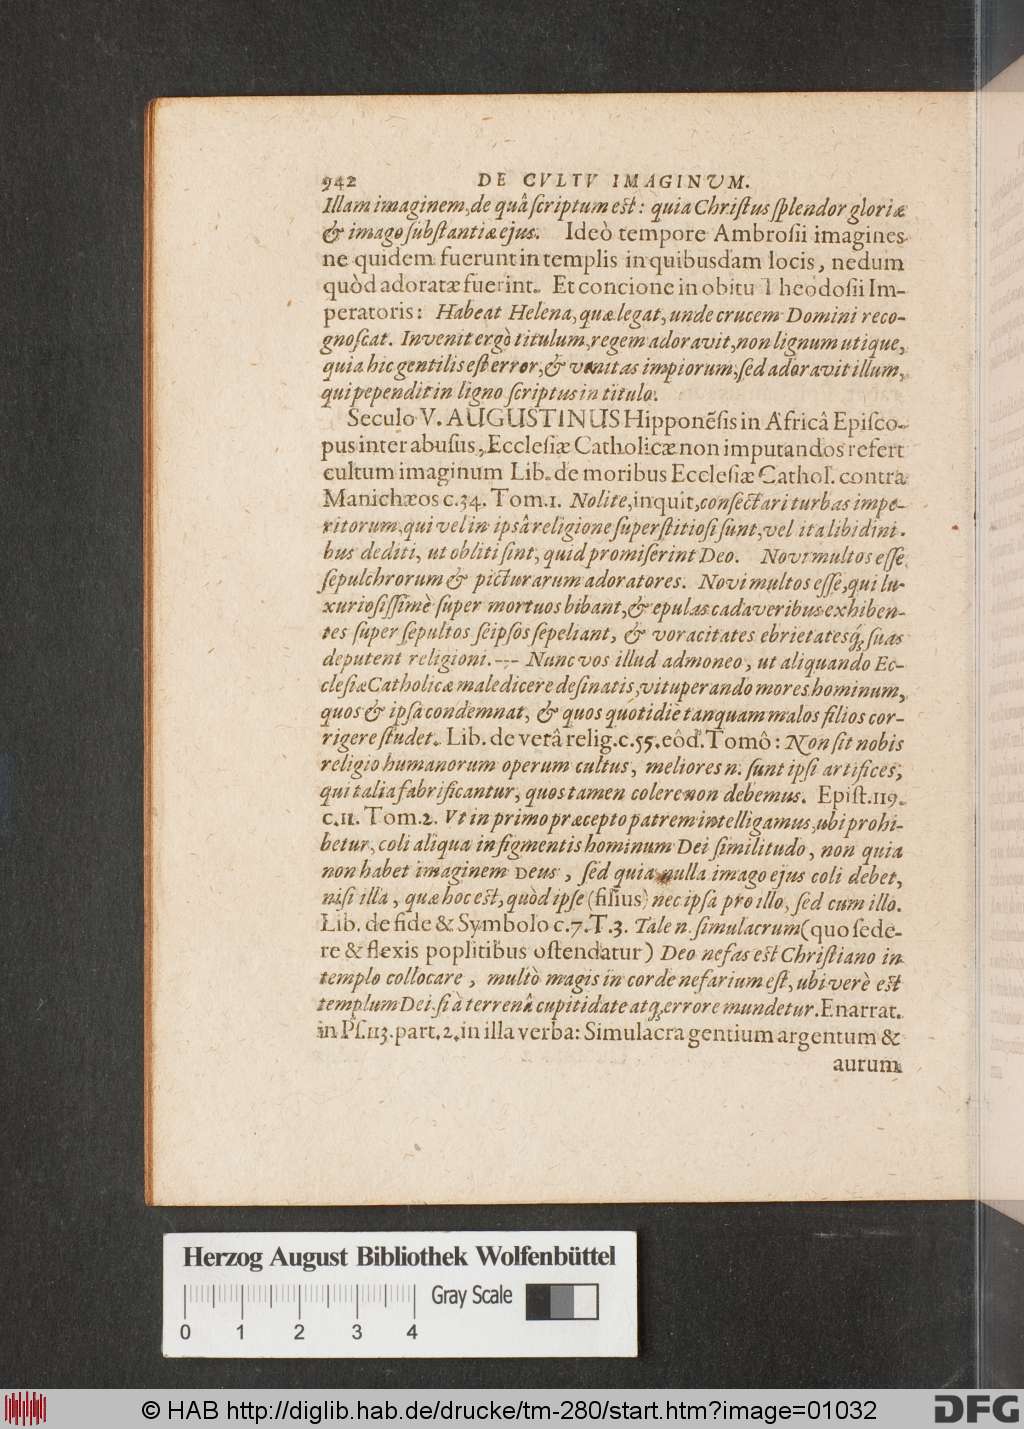 942 DE CVLTV IMAGINUM.
Illam imaginem, de quâ ſcriptum est: quia Chriſtus ſplendor gloriæ
& imago ſubſtantiæ ejus. Ideò tempore Ambroſii imagines
ne quidem fuerunt in templis in quibusdam locis, nedum
quòd adoratæ fuerint. Et concione in obitu Theodoſii Im-
peratoris: Habeat Helena, quæ legat, unde crucem Domini reco-
gnoſcat. Invenit ergò titulum, regem adoravit, non lignum utique,
quia hic gentilis eſt error, & vanitas impiorum, ſed adoravit illum,
qui pependit in ligno ſcriptus in titulo.
Seculo V. AUGUSTINUS Hipponẽſis in Africâ Epiſco-
pus inter abuſus, Eccleſiæ Catholicæ non imputandos refert
cultum imaginum Lib. de moribus Eccleſiæ Cathol. contra
Manichæos c.34. Tom.1. Nolite, inquit, conſectari turbas impe-
ritorum, qui vel in ipsâ religione ſuperſtitioſi ſunt, vel ita libidini-
bus dediti, ut obliti ſint, quid promiſerint Deo. Novi multos eſſe
ſepulchrorum & picturarum adoratores. Novi multos eſſe, qui lu-
xurioſiſſimè ſuper mortuos bibant, & epulas cadaveribus exhiben-
tes ſuper ſepultos ſeipſos ſepeliant, & voracitates ebrietatesq́; ſuas
deputent religioni.--- Nunc vos illud admoneo, ut aliquando Ec-
cleſiæ Catholicæ maledicere deſinatis, vituperando mores hominum,
quos & ipſa condemnat, & quos quotidie tanquam malos filios cor-
rigere ſtudet. Lib. de verâ relig. c.55. eôd. Tomô: Non ſit nobis
religio humanorum operum cultus, meliores n. ſunt ipſi artifices,
qui talia fabrificantur, quos tamen colere non debemus. Epiſt.119.
c.11. Tom.2. Vt in primo præcepto patrem intelligamus, ubi prohi-
betur, coli aliqua in figmentis hominum Dei ſimilitudo, non quia
non habet imaginem DEUS, ſed quia nulla imago ejus coli debet,
niſi illa, quæ hoc est, quòd ipſe (filius) nec ipſa pro illo, ſed cum illo.
Lib. de fide & Symbolo c.7. T.3. Tale n. ſimulacrum (quo ſede-
re & flexis poplitibus oſtendatur) Deo nefas est Chriſtiano in
templo collocare, multò magis in corde nefarium eſt, ubi verè est
templum Dei, ſi à terrenâ cupitidate atq; errore mundetur. Enarrat.
in Pſ.113. part.2. in illa verba: Simulacra gentium argentum &
aurum
Herzog August Bibliothek Wolfenbüttel
Gray Scale
0 1 2 3 4
© HAB http://diglib.hab.de/drucke/tm-280/start.htm?image=01032
DFG